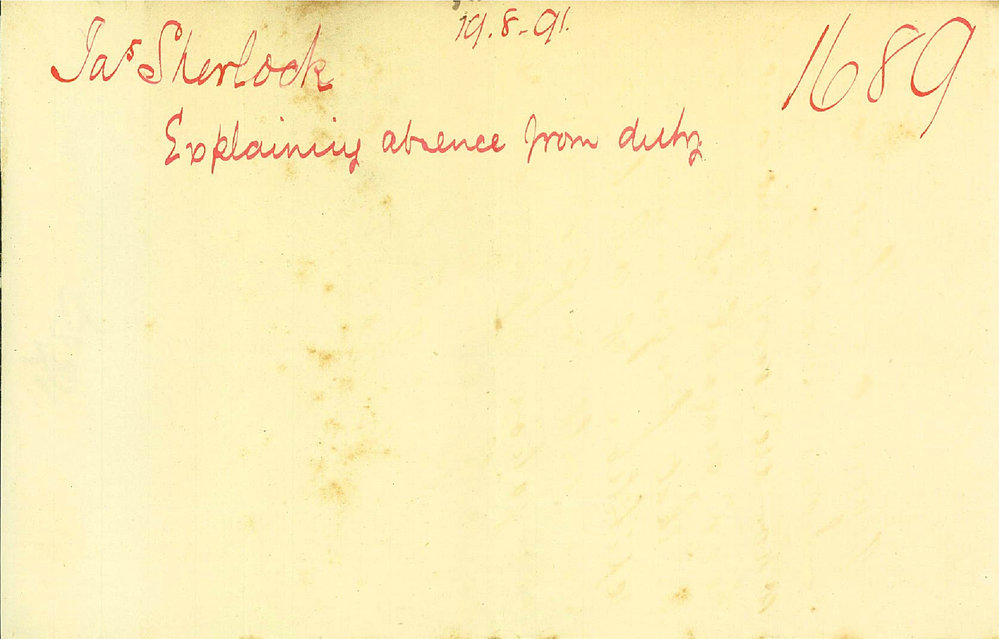 19.8.-91.
Jas Sherlock
1689
Explaining absence from duty